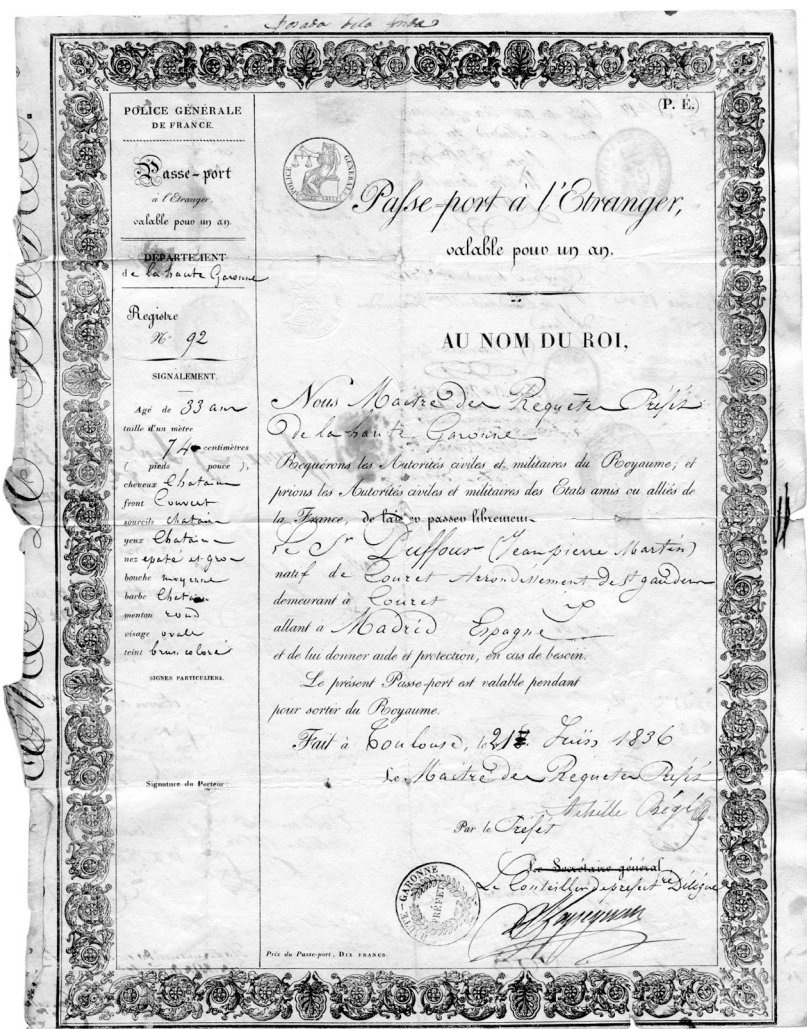 (P. E.)
POLICE GÉNÉRALE
DE FRANCE.
Passe-port
à l'Etranger,
valable pour un an.
DÉPARTEMENT
de la haute Garonne
Registre
Nº 92
SIGNALEMENT.
Agé de 33 ans
taille d'un mètre
74 centimètres
( pieds pouce ),
cheveux Chatain
front Couvert
sourcils chatain
yeux Chatain
nez epaté et gros
bouche moyenne
barbe Chatain
menton rond
visage ovale
teint brun coloré
SIGNES PARTICULIERS.
Signature du Porteur :
POLICE GÉNÉRALE
Passe-port à l'Etranger,
valable pour un an.
AU NOM DU ROI,
Nous Maitre des Requêtes Préfet
de la haute Garonne
Requérons les Autorités civiles et militaires du Royaume, et
prions les Autorités civiles et militaires des Etats amis ou alliés de
la France, de laisser passer librement
le Sr Duffour (Jean pierre Martin)
natif de Couret Arrondissement de St gaudens
demeurant à Couret
allant à Madrid Espagne
et de lui donner aide et protection, en cas de besoin.
Le présent Passe-port est valable pendant
pour sortir du Royaume.
Fait à Toulouse, le Juin 1836
Le Maitre des Requêtes Préfet
Achille Bégé
Par le Préfet
Le Secrétaire général
Le Conseiller de préfecture Délégué
HAUTE-GARONNE
Prix du Passe-port, DIX FRANCS.